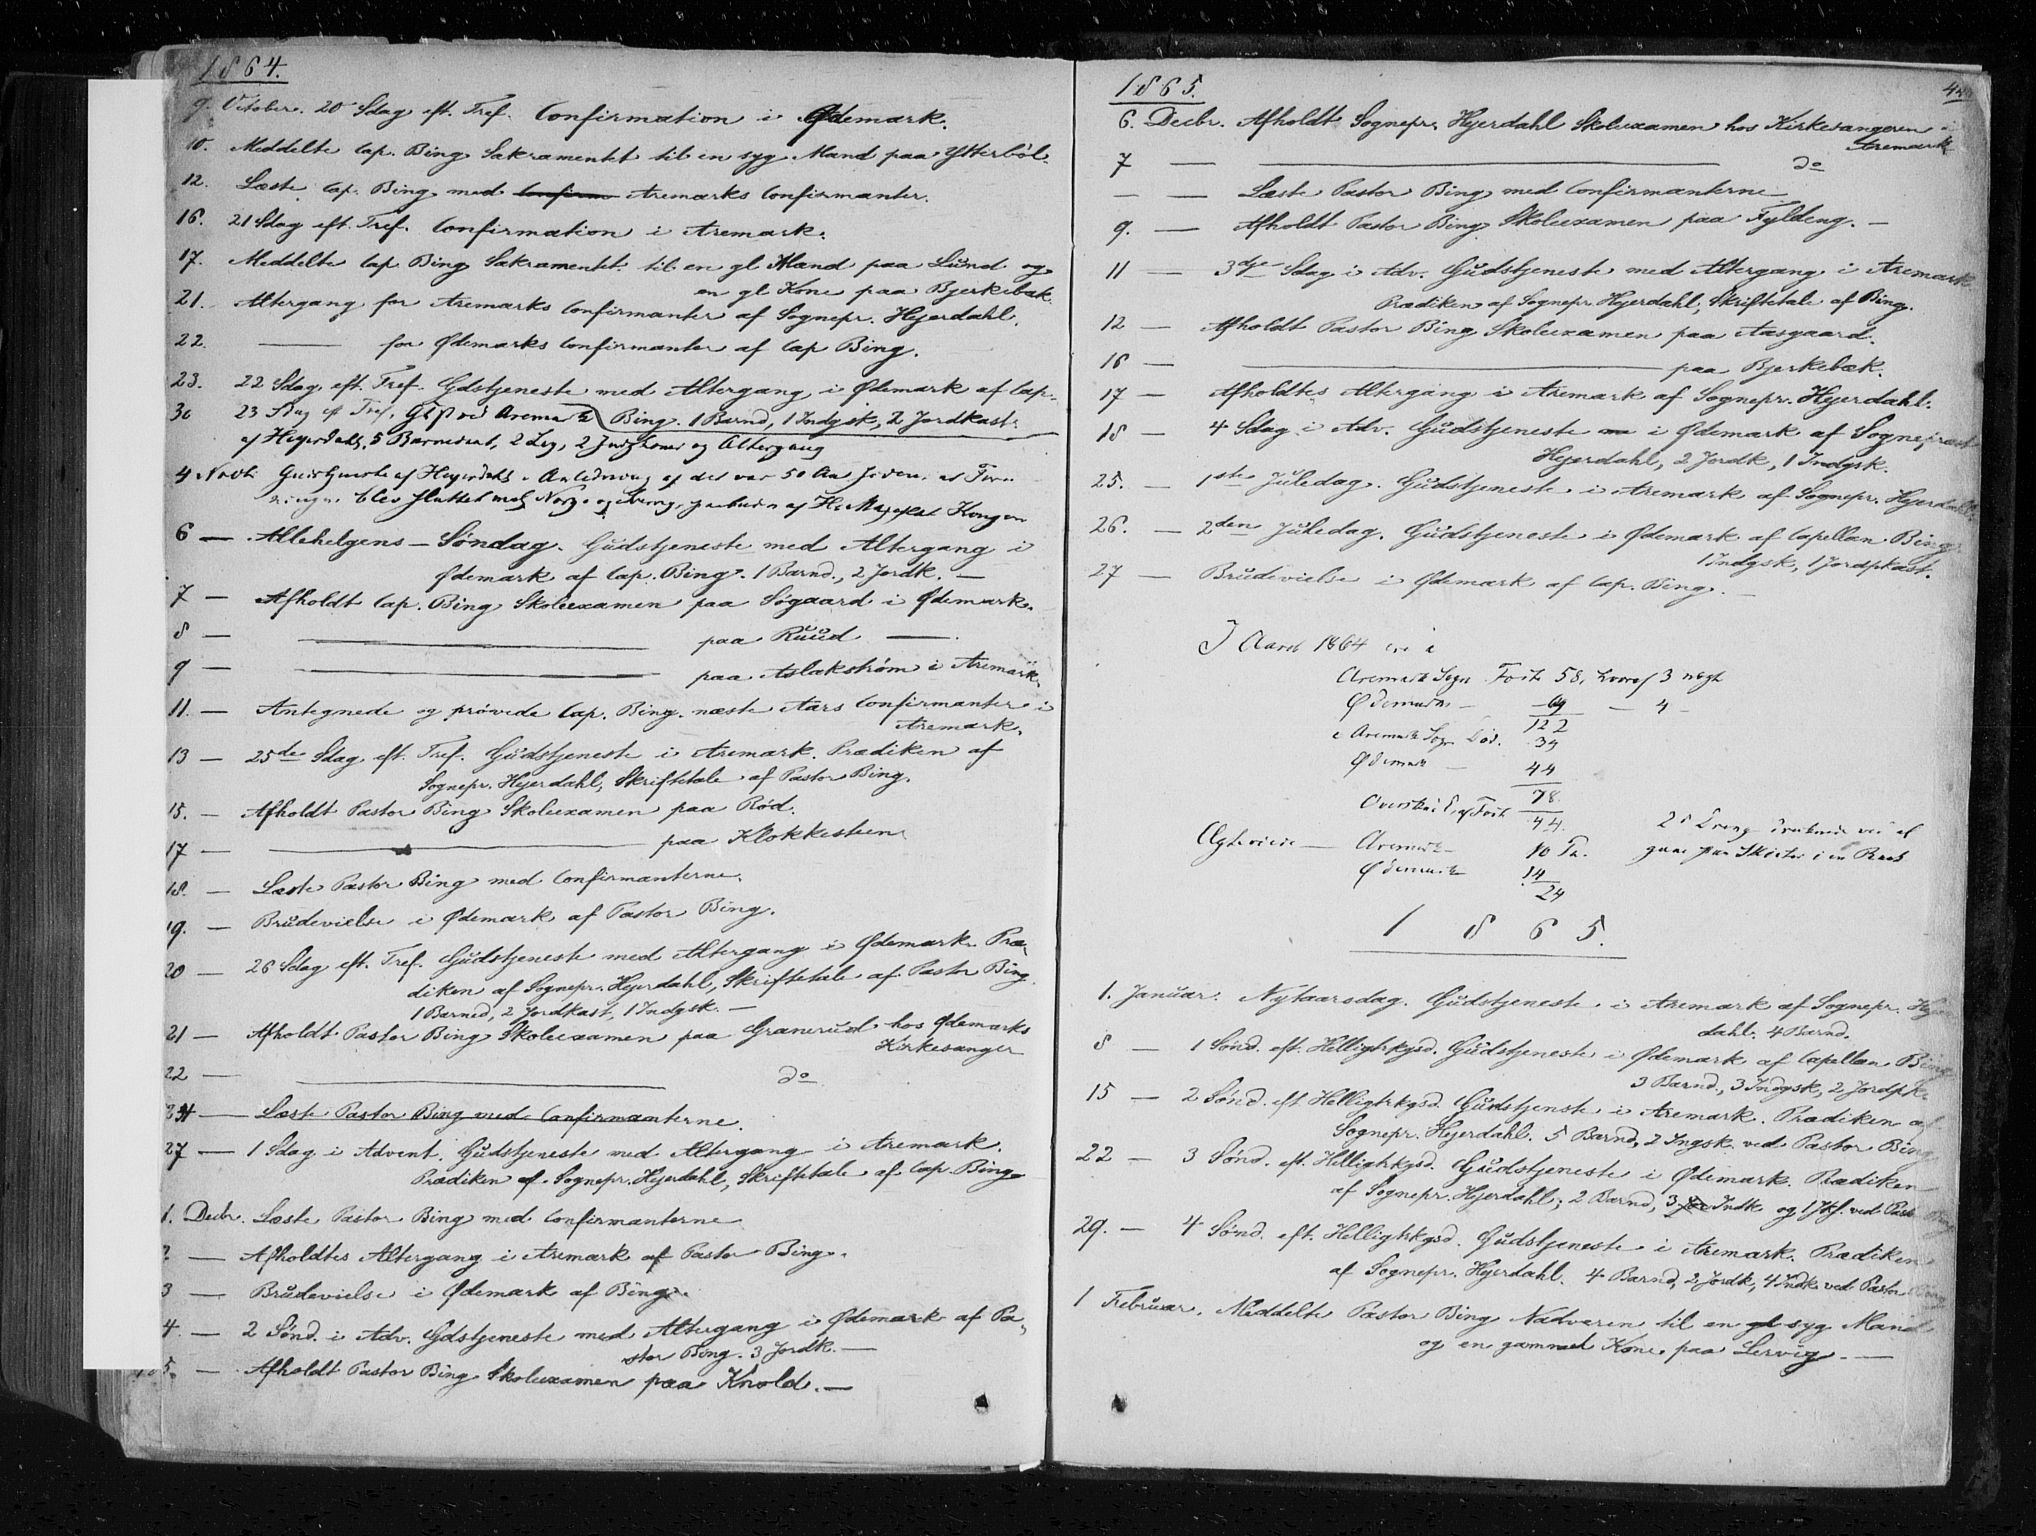 1864.
9. October. 20 Sdag eft. Tref. Confirmation i Ødemark.
10. Meddelte Cap. Bing Sakramentet til en syg Mand paa Ytterböl.
12. Læste Cap. Bing med Confirm Aremarks Confirmanter.
16. 21 Sdag eft. Tref. Confirmation i Aremark.
17. Meddelte Cap. Bing Sakramentet til en gl Mand paa Lund og
en gl Kone paa Bjerkebæk.
21. Altergang for Aremarks Confirmanter af Sognepr. Hjerdahl.
22. — for Ødemarks Confirmanter af Cap Bing.
23. 22 Sdag eft. Tref. Gdstjeneste med Altergang i Ødemark af Cap.
Bing. 1 Barnd, 1 Indgsk, 2 Jordkast.
30 23 Sdag eft Tref. Gtjst ved Aremark
af Hejerdahl, 5 Barnedaab, 2 Lig, 2 Indg Koner og Altergang
4 Novbr Gudstjeneste af Hejerdahl i Anledning af det var 50 Aar siden at Foreningen
blev sluttet mell Norge og Sverrig, paabuden af Hs Majestæt Kongen
6 — Allehelgens-Søndag. Gudstjeneste med Altergang i
Ødemark af Cap. Bing. 1 Barnd., 2 Jordk. —
7 — Afholdt Cap. Bing Skoleexamen paa Søgaard i Ødemark.
8 — — paa Ruud —.
9 — — paa Aslakstrøm i Aremark.
11. — Antegnede og prøvede Cap. Bing næste Aars Confirmanter i
Aremark.
13 — 25de Sdag eft. Tref. Gudstjeneste i Aremark. Prædiken af
Sognepr. Hjerdahl, Skriftetale af Pastor Bing.
15. — Afholdt Pastor Bing Skoleexamen paa Rød.
17 — — paa Klokkesteen
18. — Læste Pastor Bing med Confirmanterne.
19. — Brudevielse i Ødemark af Pastor Bing.
20 — 26 Sdag eft. Tref. Gudstjeneste med Altergang i Ødemark. Præ-
diken af Sognepr. Hjerdahl, Skriftetale af Pastor Bing.
1 Barned, 2 Jordkast, 1 Indgsk. —
21 — Afholdt Pastor Bing Skoleexamen paa Granerud hos Ødemarks
Kirkesanger
22 — — do
24 — Læste Pastor Bing med Confirmanterne.
27 — 1 Sdag i Advent. Gudstjeneste med Altergang i Aremark.
Prædiken af Sognepr. Hjerdahl, Skriftetale af Cap Bing
1. Decbr. Læste Pastor Bing med Confirmanterne
2 — Afholdtes Altergang i Aremark af Pastor Bing.
3 — Brudevielse i Ødemark af Bing.
4. — 2 Sønd. i Adv. Gdstjeneste med Altergang i Ødemark af Pa-
stor Bing. 3 Jordk. —
5. — Afholdt Pastor Bing Skoleexamen paa Knold. —
1865.
6. Decbr. Afholdt Sognepr. Hjerdahl Skoleexamen hos Kirkesangeren i
Aremark
7 — — do
— — Læste Pastor Bing med Confirmanterne
9. — Afholdt Pastor Bing Skoleexamen paa Fyldeng. —
11 — 3die Sdag i Adv. Gudstjeneste med Altergang i Aremark
Prædiken af Sognepr. Hjerdahl, Skriftetale af Bing.
12 — Afholdt Pastor Bing Skoleexamen paa Aasgaard.
16 — — paa Bjerkebæk.
17 — Afholdtes Altergang i Aremark af Sognepr. Hjerdahl.
18 — 4 Sdag i Adv. Gudstjeneste i Ødemark af Sognepræst
Hjerdahl, 2 Jordk, 1 Indgsk.
25. — 1ste Juledag. Gudstjeneste i Aremark af Sognepr. Hjerdahl.
26. — 2den Juledag. Gudstjeneste i Ødemark af Capellan Bing
1 Indgsk, 1 Jordpkast.
27 — Brudevielse i Ødemark af Cap. Bing. —
I Aaret 1864 ere i
Aremark Sogn Fødte 58, hvoraf 3 uægt
Ødemarks — 64 — 4 —
122
i Aremark Sogn Død. 34
Ødemark — 44
78
Overskud af Fødte 44.
2 i Dreng druknede ved at
gaae paa Skøiter i en Raak
Ægteviede — Aremark — 10 Pa.
Ødemark 14
24
1865.
1. Januar. Nytaarsdag. Gudstjeneste i Aremark af Sognepr. Hjer
dahl. 4 Barnd.
8 — 1 Sønd. eft. Helligtrkgsd. Gudstjeneste i Ødemark af Capellan Bing
3 Barnd., 3 Indgsk, 2 Jordpk.
15 — 2 Sønd. eft Helligtrkgsd. Gudstjenste i Aremark. Prædiken af
Sognepr. Hjerdahl. 5 Barnd, 2 Ingsk. ved Pastor Bing
22 — 3 Sønd. eft. Helligtrkgsd. Gudstjeneste i Ødemark. Prædiken
af Sognepr. Hjerdahl; 2 Barnd, 3 Indk og 1 Jkf. ved Past Bing
29. — 4 Sønd. eft. Helligtrkgsd. Gudstjeneste i Aremark. Prædiken
af Sognepr. Hjerdahl. 4 Barnd, 2 Jordk, 4 Indk ved Pastor Bing
1 Februar. Meddelte Pastor Bing Nadveren til en gl syg Mand
og en gammel Kone paa Lervig. —